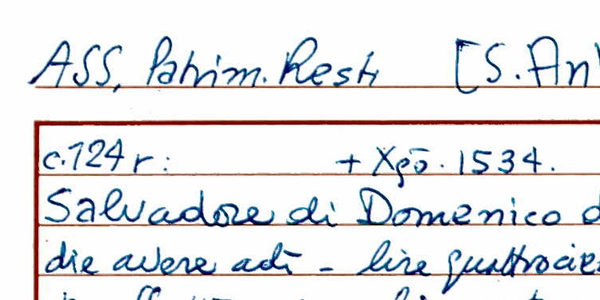 ASS, Patrim. Resti [S. An
c. 124 r: + Xpō. 1534.
Salvadore di Domenico d
die avere adi - lire quattrocie